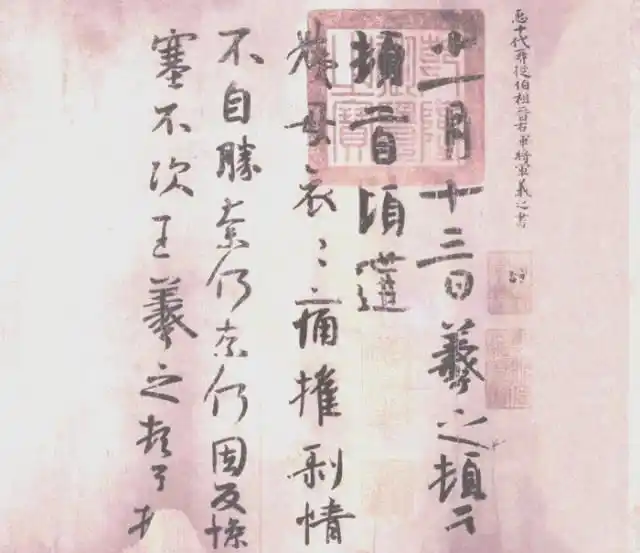 十代再從伯祖晉右軍將軍羲之書
十一月十三日羲之頓首
頓首頃遘
姨母哀〻痛摧剝情
不自勝奈何奈何因反慘
塞不次王羲之頓首